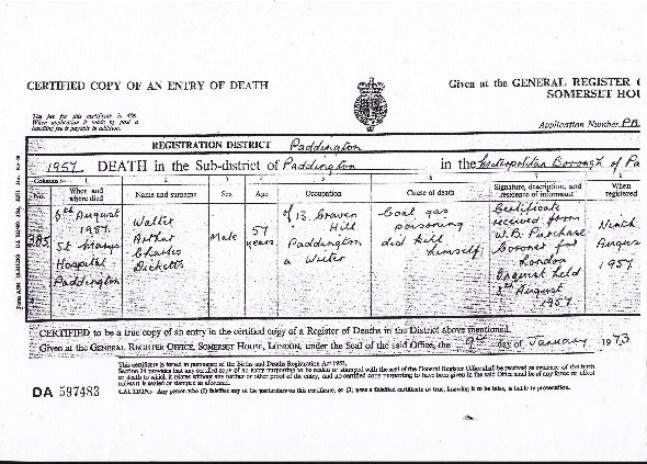 CERTIFIED COPY OF AN ENTRY OF DEATH
Given at the GENERAL REGISTER
SOMERSET HOU
The fee for this certificate is
When application is made by post a
handling fee is payable in addition.
Application Number PA
REGISTRATION DISTRICT Paddington
1957. DEATH in the Sub-district of Paddington in the Metropolitan Borough of Pa
Columns:- 1 2 3 4 5 6 7 8
No. When and where died Name and surname Sex Age Occupation Cause of death Signature, description, and residence of informant When registered
385 6th August 1957. St Marys Hospital Paddington
Walter Arthur Charles Dicketts
Male
57 years
of 13 Craven Hill Paddington a Writer
Coal gas poisoning did kill himself
Certificate received from W.B. Purchase Coroner for London Inquest held 8th August 1957.
Ninth Augus 1957
CERTIFIED to be a true copy of an entry in the certified copy of a Register of Deaths in the District above mentioned.
Given at the GENERAL REGISTER OFFICE, SOMERSET HOUSE, LONDON, under the Seal of the said Office, the 9th day of January 1973
This certificate is issued in pursuance of the Births and Deaths Registration Act 1953.
Section 34 provides that any certified copy of an entry purporting to be sealed or stamped with the seal of the General Register Office shall be received as evidence of the birth
or death to which it relates without any further or other proof of the entry, and no certified copy purporting to have been given in the said Office shall be of any force or effect
unless it is sealed or stamped as aforesaid.
DA 597483
CAUTION:- Any person who (1) falsifies any of the particulars on this certificate, or (2) uses a falsified certificate as true, knowing it to be false, is liable to prosecution.